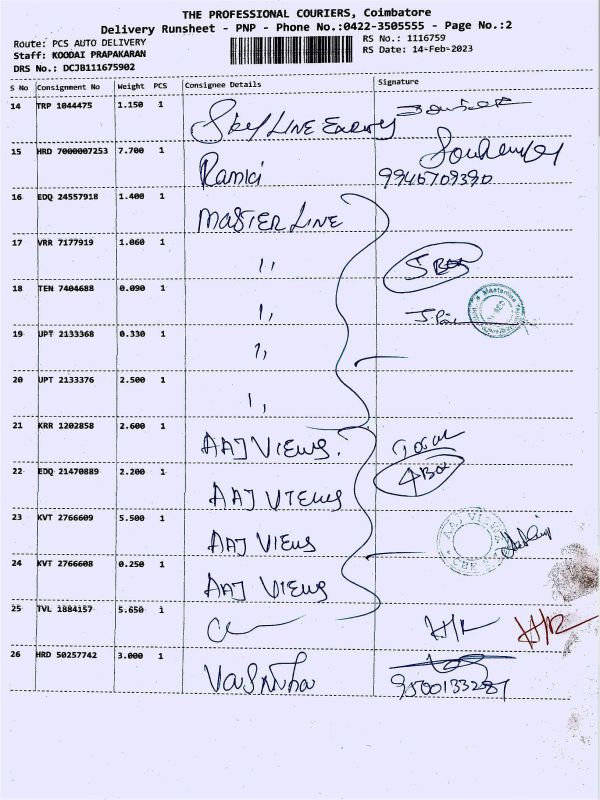 THE PROFESSIONAL COURIERS, Coimbatore
Delivery Runsheet - PNP - Phone No.:0422-3505555 - Page No.:2
Route: PCS AUTO DELIVERY
RS No.: 1116759
Staff: KOODAI PRAPAKARAN
RS Date: 14-Feb-2023
DRS No.: DCJB111675902
S No Consignment No Weight PCS Consignee Details Signature
14 TRP 1044475 1.150 1 Sky LINE Energy
15 HRD 7000007253 7.700 1 Ramki
9946709390
16 EDQ 24557918 1.400 1 MASTER LINE
17 VRR 7177919 1.060 1 ,, 5 Box
18 TEN 7404688 0.090 1 ,,
19 UPT 2133368 0.330 1 ,,
20 UPT 2133376 2.500 1 ,,
21 KRR 1202858 2.600 1 AAJ VIEWS
22 EDQ 21470889 2.200 1 AAJ VIEWS 4 Box
23 KVT 2766609 5.500 1 AAJ VIEWS
24 KVT 2766608 0.250 1 AAJ VIEWS
25 TVL 1884157 5.650 1
26 HRD 50257742 3.000 1 Vasantha
9500133287